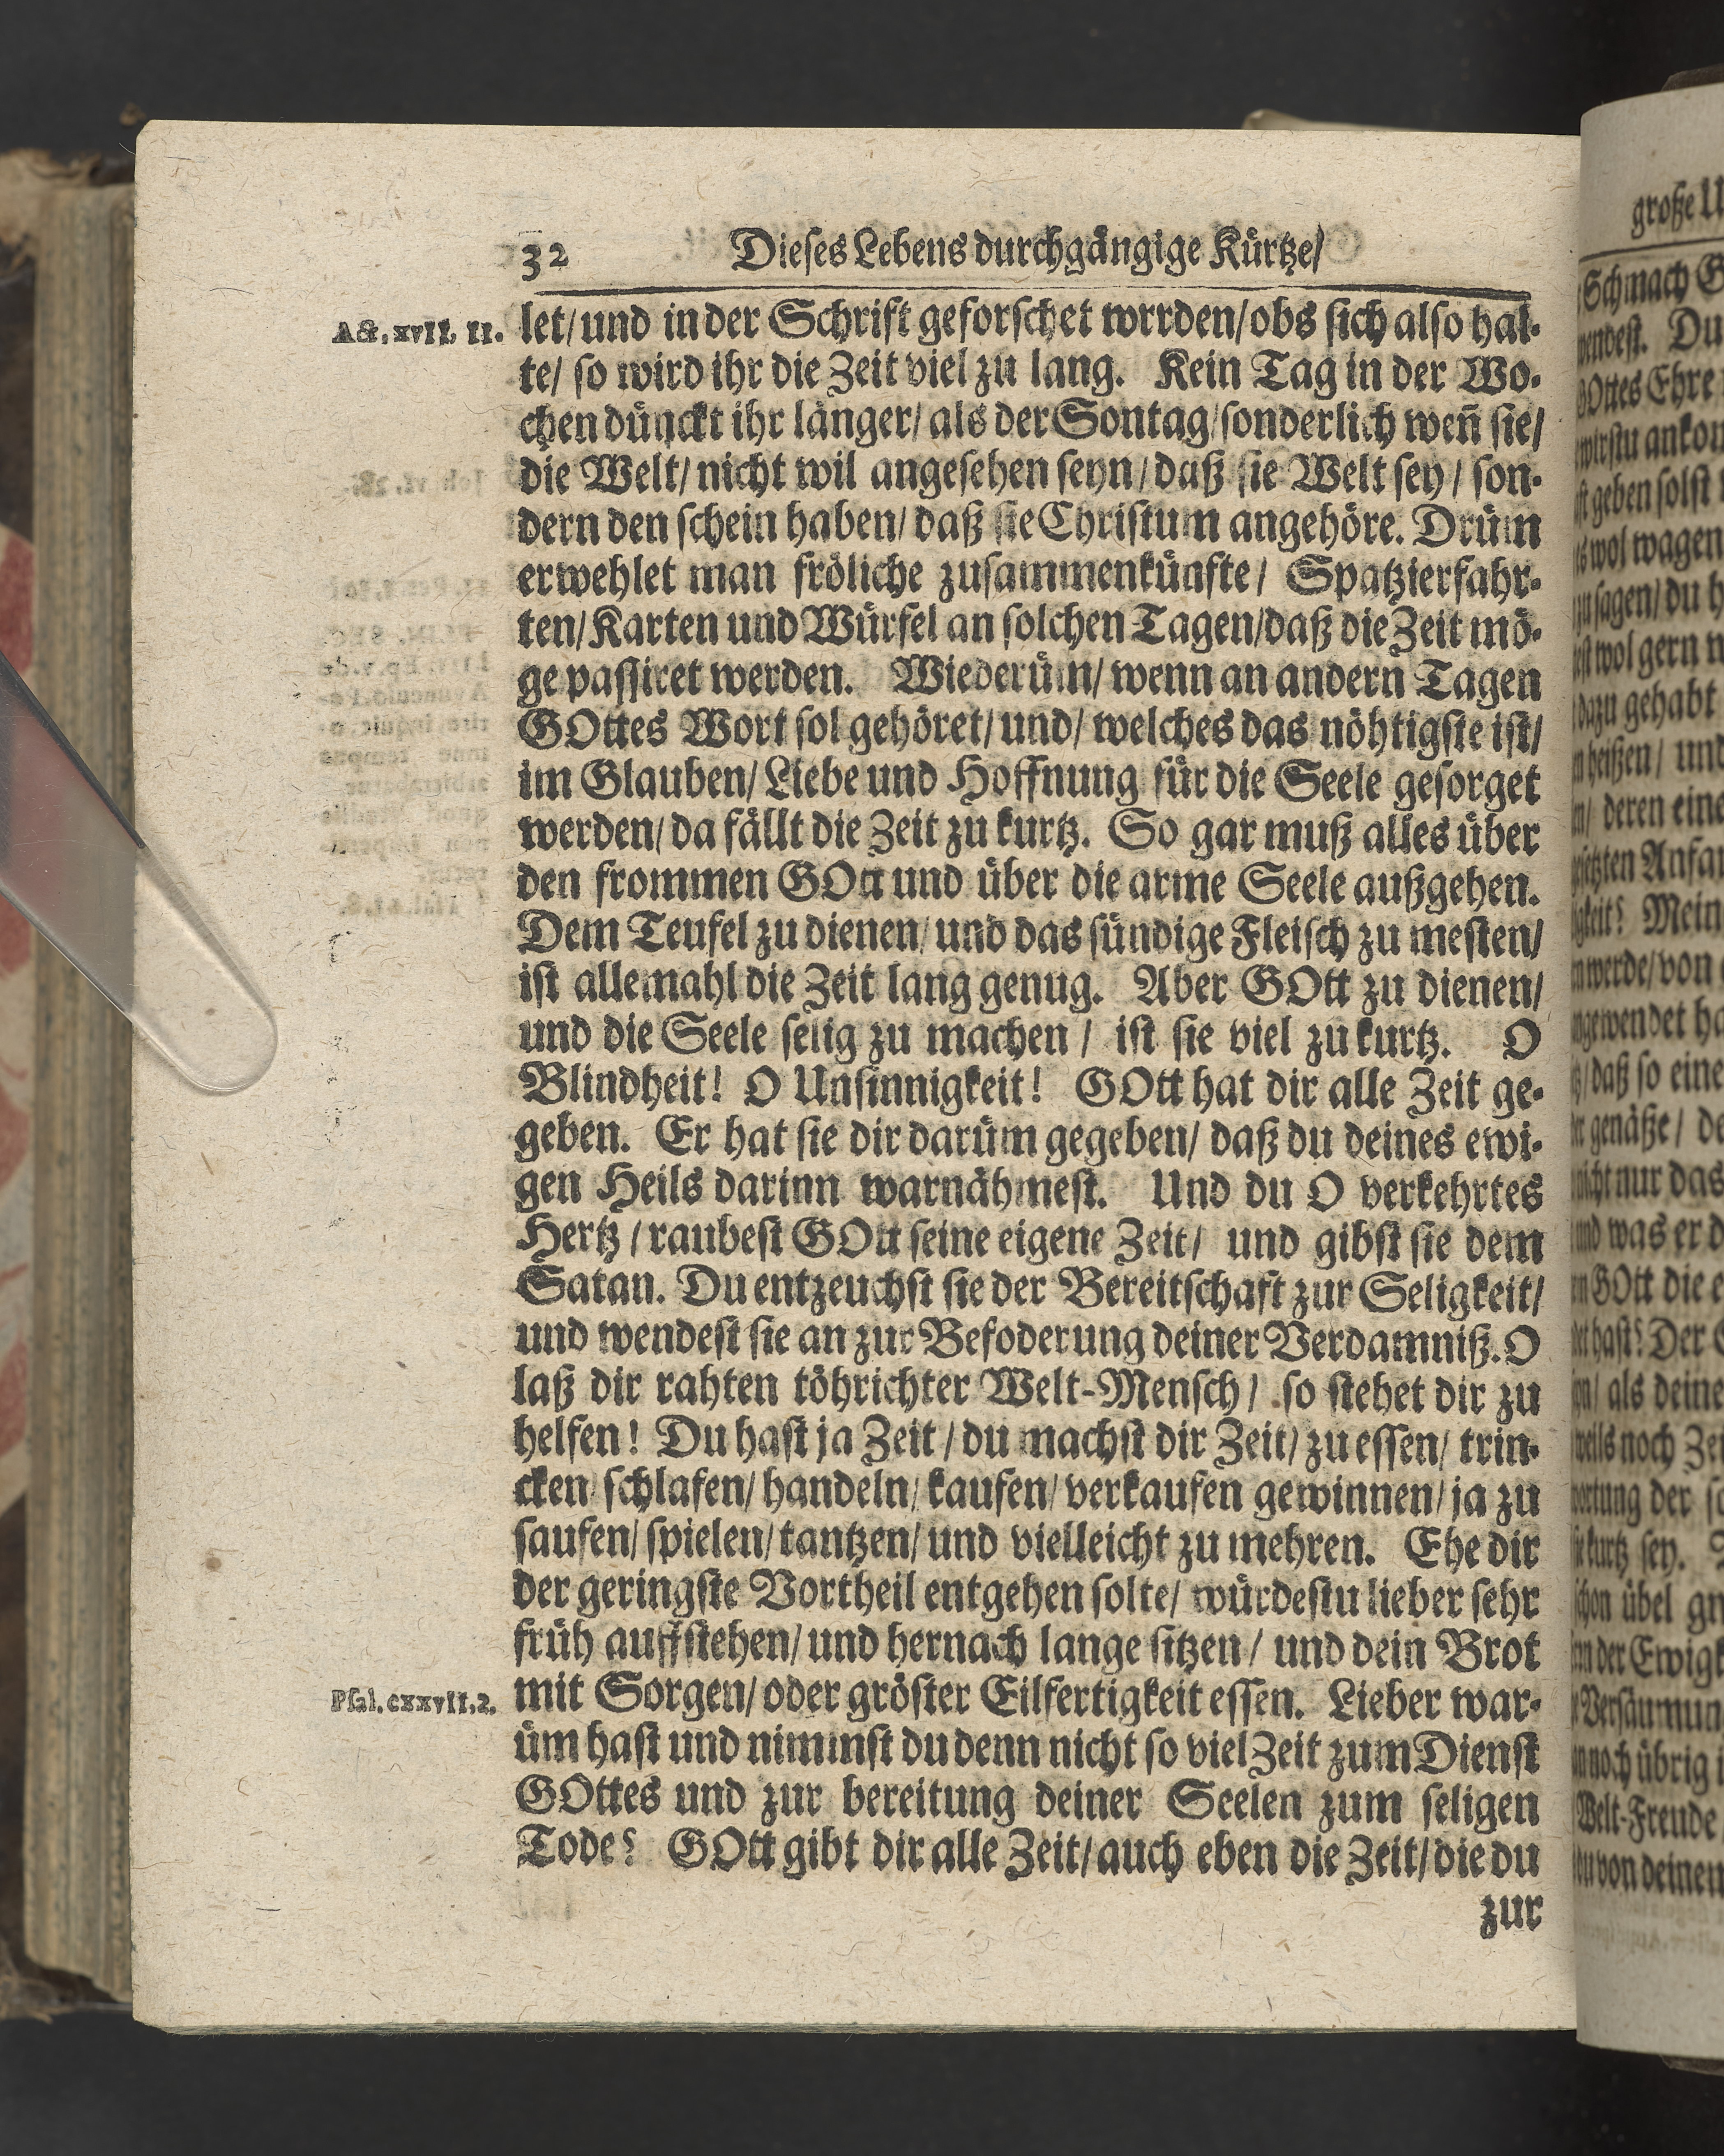 32 Dieses Lebens durchgängige Kürtze/
Act. xvII. II. let/ und in der Schrift geforschet wrrden/ obs sich also hal-
te/ so wird ihr die Zeit viel zu lang. Kein Tag in der Wo-
chen dünckt ihr länger/ als der Sontag/ sonderlich weñ sie/
die Welt/ nicht wil angesehen seyn/ daß sie Welt sey/ son-
dern den schein haben/ daß sie Christum angehöre. Drüm
erwehlet man fröliche zusammenkünfte/ Spatzierfahr-
ten/ Karten und Würfel an solchen Tagen/ daß die Zeit mö-
ge passiret werden. Wiederüm/ wenn an andern Tagen
GOttes Wort sol gehöret/ und/ welches das nöhtigste ist/
im Glauben/ Liebe und Hoffnung für die Seele gesorget
werden/ da fällt die Zeit zu kurtz. So gar muß alles über
den frommen GOtt und über die arme Seele außgehen.
Dem Teufel zu dienen/ und das sündige Fleisch zu mesten/
ist allemahl die Zeit lang genug. Aber GOtt zu dienen/
und die Seele selig zu machen/ ist sie viel zu kurtz. O
Blindheit! O Unsinnigkeit! GOtt hat dir alle Zeit ge-
geben. Er hat sie dir darüm gegeben/ daß du deines ewi-
gen Heils darinn warnähmest. Und du O verkehrtes
Hertz/ raubest GOtt seine eigene Zeit/ und gibst sie dem
Satan. Du entzeuchst sie der Bereitschaft zur Seligkeit/
und wendest sie an zur Befoderung deiner Verdamniß. O
laß dir rahten töhrichter Welt-Mensch/ so stehet dir zu
helfen! Du hast ja Zeit/ du machst dir Zeit/ zu essen/ trin-
cken/ schlafen/ handeln/ kaufen/ verkaufen gewinnen/ ja zu
saufen/ spielen/ tantzen/ und vielleicht zu mehren. Ehe dir
der geringste Vortheil entgehen solte/ würdestu lieber sehr
früh auffstehen/ und hernach lange sitzen/ und dein Brot
Psal. cxxvII. 2. mit Sorgen/ oder gröster Eilfertigkeit essen. Lieber war-
üm hast und nimmst du denn nicht so viel Zeit zum Dienst
GOttes und zur bereitung deiner Seelen zum seligen
Tode? GOtt gibt dir alle Zeit/ auch eben die Zeit/ die du
zur